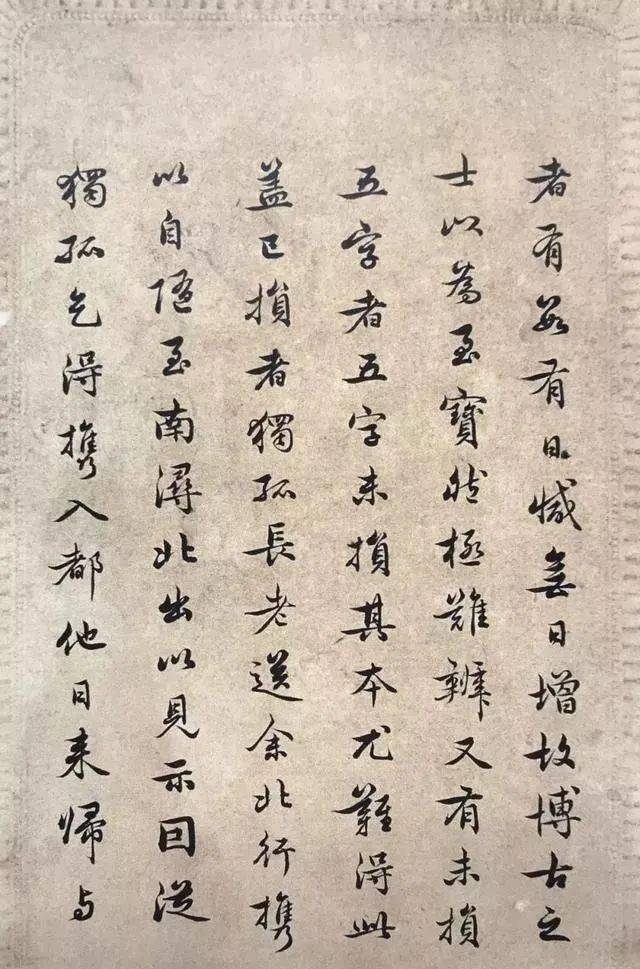 者有數有日減無日增故博古之
士以為至寶然極難辨又有未損
五字者五字未損其本尤難得此
蓋已損者獨孤長老送余北行攜
以自隨至南潯北出以見示因從
獨孤乞得攜入都他日來歸与